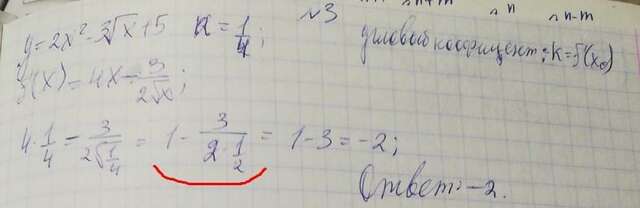 n+m n n-m
y=2x²-3√x+5 x=1/4; №3 угловый коэфицент: k=f'(x₀)
f'(x)=4x-3/(2√x);
4·1/4-3/(2√(1/4))=1-3/(2·1/2)=1-3=-2;
Ответ:-2.